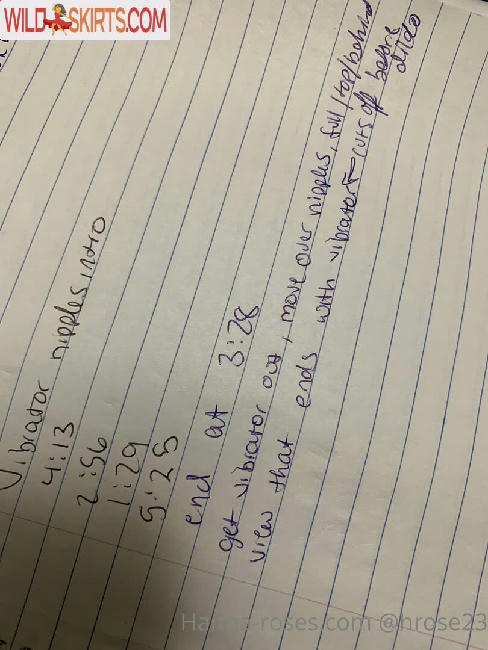 WILD SKIRTS.COM
Vibrator nipples, intro
4:13
2:56
1:29
5:25
end at 3:28
get vibrator out, move over nipples, full/top/behind
view that ends with vibrator cuts off before
dildo
Hanna-roses.com @hrose23